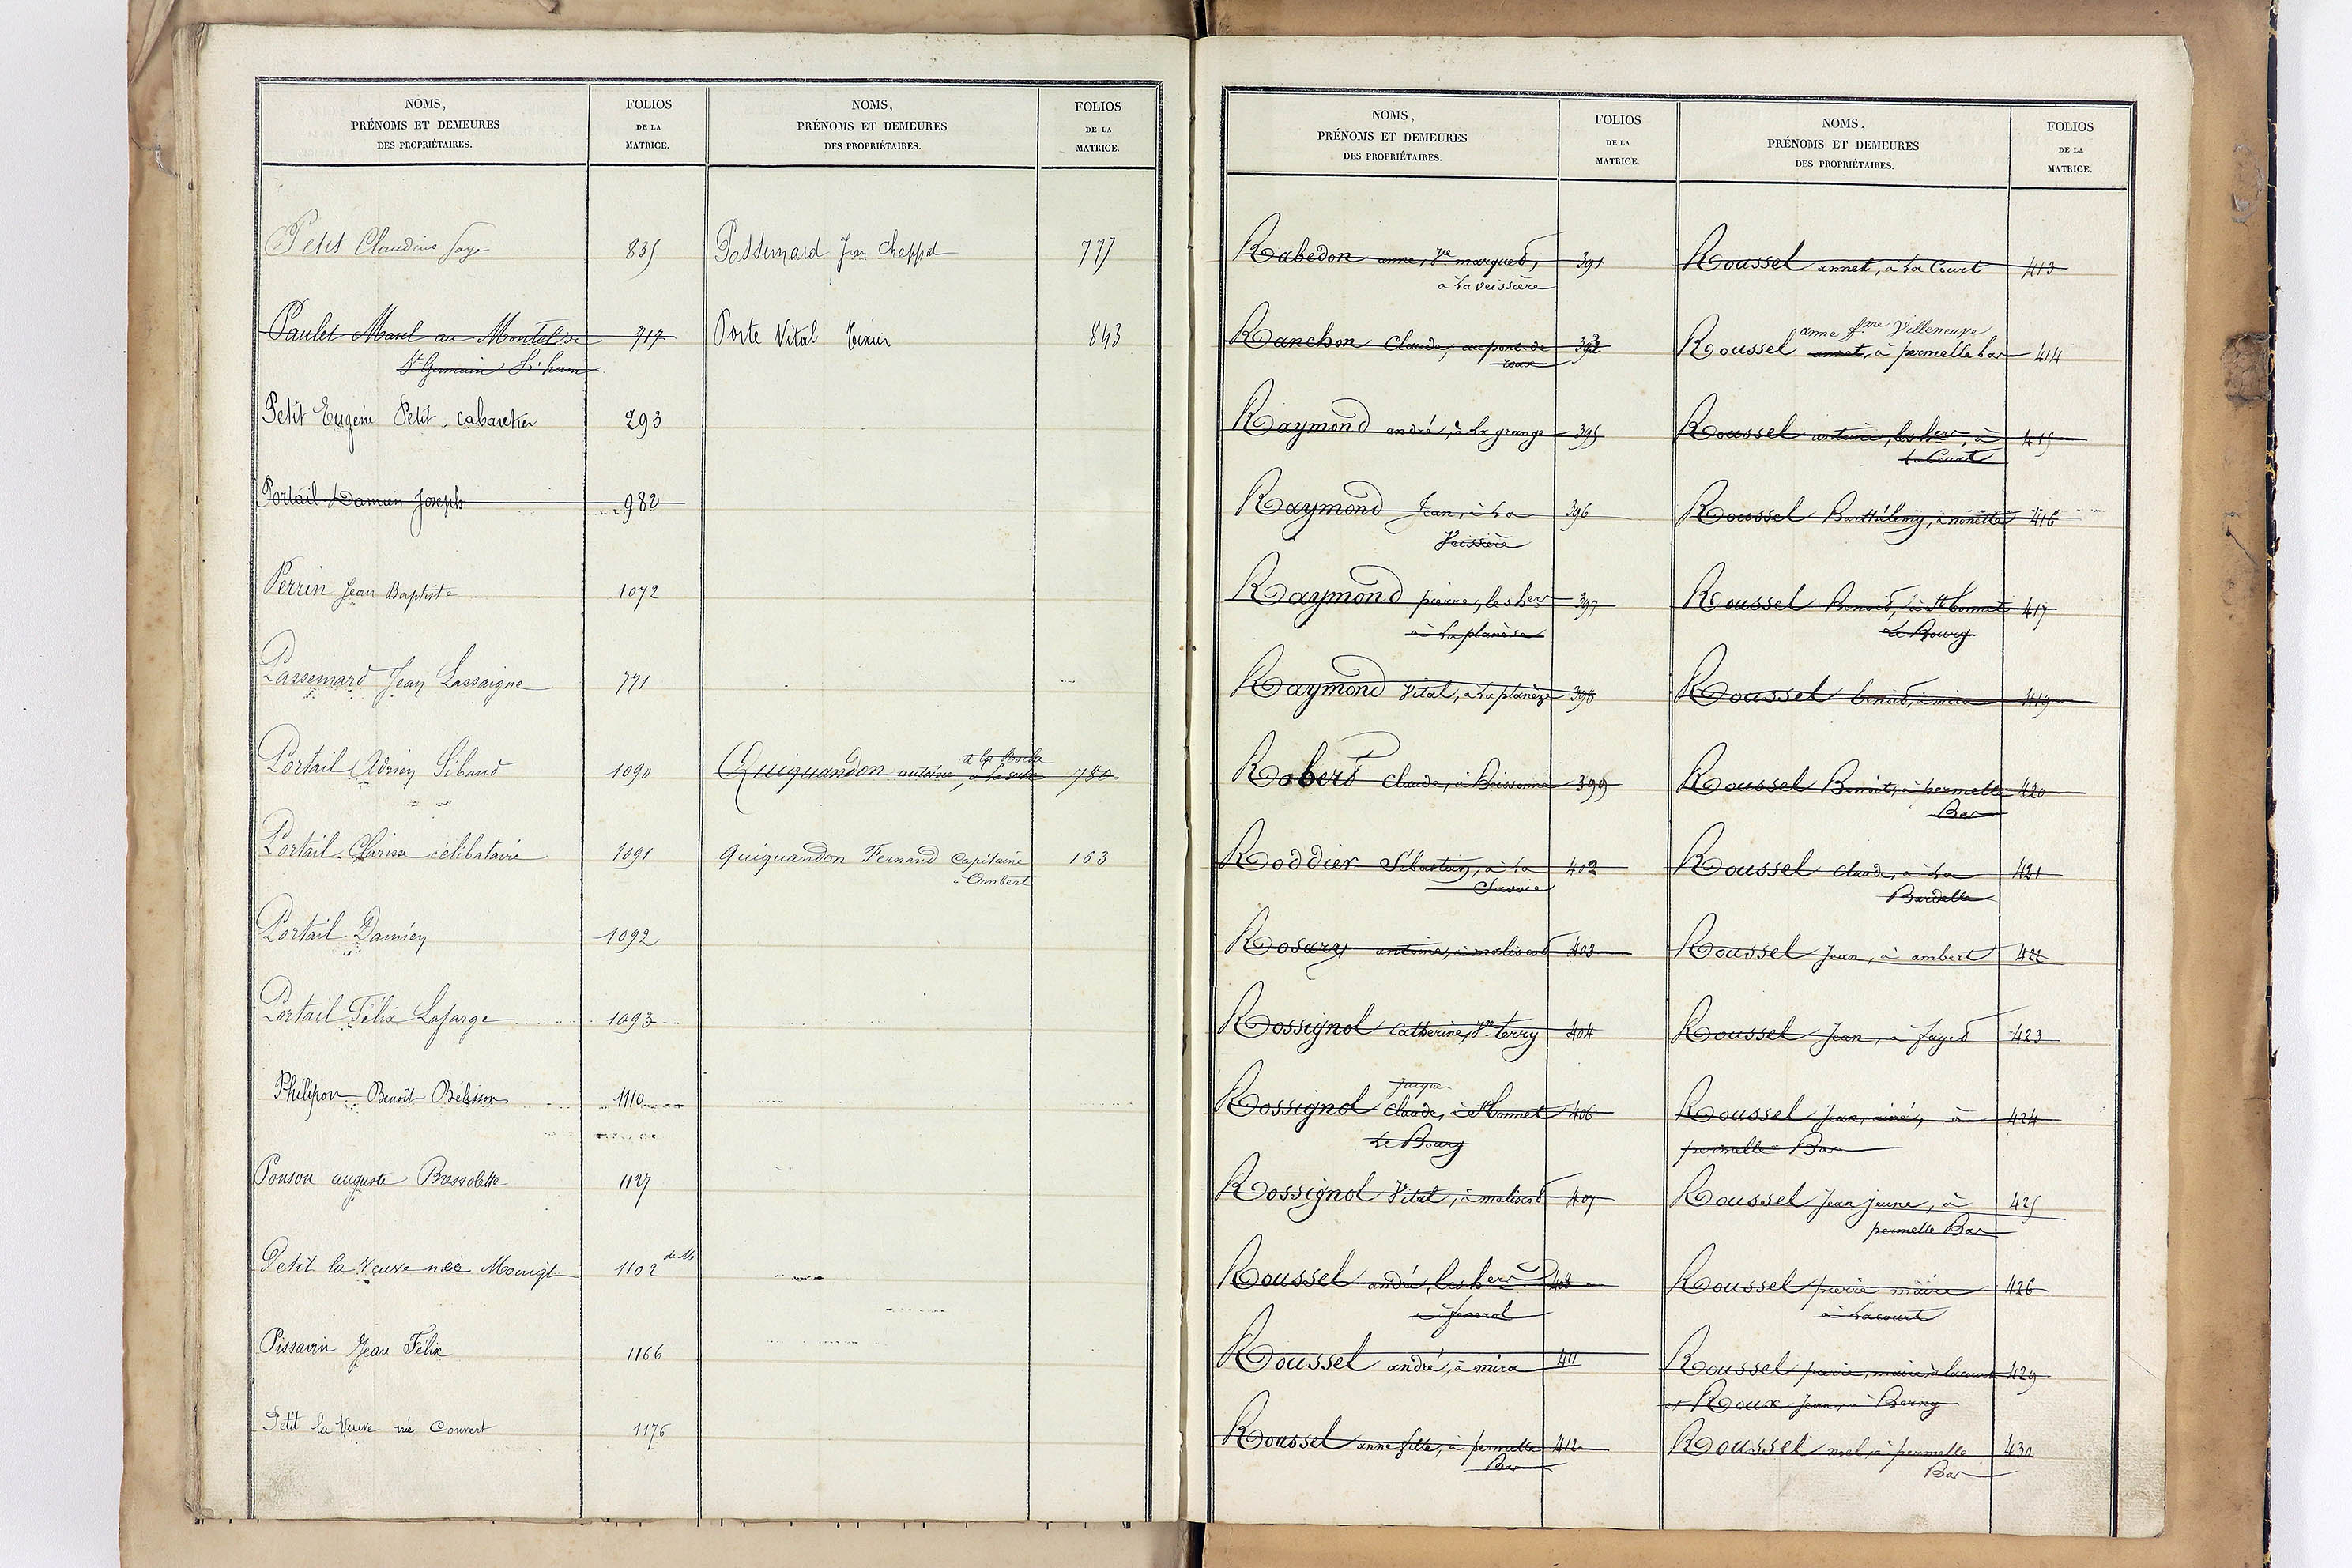 NOMS,
PRÉNOMS ET DEMEURES
DES PROPRIÉTAIRES.
FOLIOS
DE LA
MATRICE.
Petit Claudius Faye 835
Paulet Marel au Montel de 717
St Germain L'herm
Petit Eugène Petit cabaretier 293
Portail Damien Joseph 982
Perrin Jean Baptiste 1072
Passemard Jean Lassaigne 771
Portail Adrien Sibaud 1090
Portail Clarisse célibataire 1091
Portail Damien 1092
Portail Félix Lafarge 1093
Philipon Benoit Béléson 1110
Ponson auguste Bressolette 1127
Petit la Veuve née 1102
Pissavin Jean Félix 1166
Petit la Veuve née Convert 1176
NOMS,
PRÉNOMS ET DEMEURES
DES PROPRIÉTAIRES.
FOLIOS
DE LA
MATRICE.
Passemard Jean Chappat 777
Porte Vital Texier 843
à la Roche
Quiquandon antoine, 780
Quiquandon Fernand Capitaine 163
à Ambert
NOMS,
PRÉNOMS ET DEMEURES
DES PROPRIÉTAIRES.
FOLIOS
DE LA
MATRICE.
Rabedon anne, Ve marquet, 391
à La veissière
Ranchon Claude, au pont de 393
roux
Raymond andré, à La grange 395
Raymond Jean, à La 396
Veissière
Raymond pierre, les hers 397
à La planèze
Raymond Vital, à La planèze 398
Robert Claude, à Boissonne 399
Roddier Sébastien, à La 402
Clavoie
Rosary antoine, à maliscot 403
Rossignol Catherine, Ve terry 404
Jacque
Rossignol Claude, à St bonnet 406
Le Bourg
Rossignol Vital, à maliscot 407
Roussel andré, les hers 408
à fenerol
Roussel andré, à mira 411
Roussel anne fille, à permelle 412
Bar
NOMS,
PRÉNOMS ET DEMEURES
DES PROPRIÉTAIRES.
FOLIOS
DE LA
MATRICE.
Roussel annet, à La Court 413
anne fme Villeneuve
Roussel annet, à permelle bar 414
Roussel antoine, les hers, à 415
La Court
Roussel Barthélemy, à nonette 416
Roussel Benoit, à St bonnet 417
Le Bourg
Roussel benoit, à mira 419
Roussel Benoit, à permelle 420
Bar
Roussel claude, à La 421
Bardelle
Roussel Jean, à ambert 422
Roussel Jean, à fayet 423
Roussel Jean, ainé, à 424
permelle Bar
Roussel Jean jeune, à 425
permelle Bar
Roussel pierre maire 426
à Lacourt
Roussel pierre, maire à lacourt 429
et Roux Jean, à Berny
Roussel noel, à permelle 430
Bar